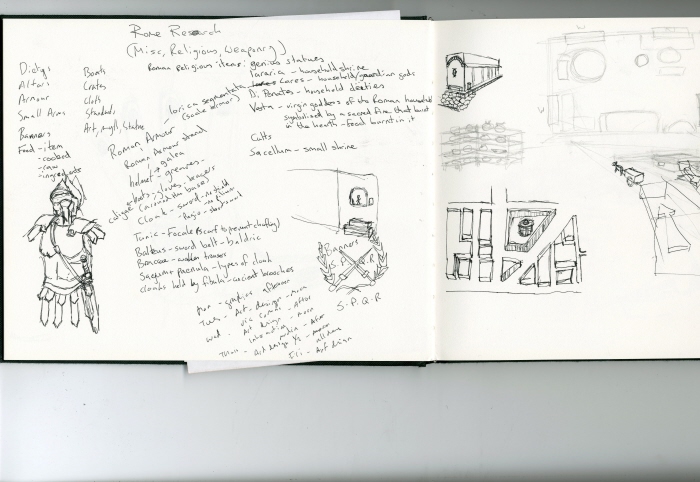 Rome Research
(Misc, Religious, Weaponry)
Roman religious items: genius statues
lararia - household shrine
Lares - household/guardian gods
D. Penates - household deities
Vesta - virgin goddess of the Roman household
symbolised by a sacred fire that burnt
in the hearth - food burnt in it
Cults
Sacellum - small shrine
Dietys
Altars
Armour
Small Arms
Banners
Food - item
- cooked
- raw
- ingredients
Boats
Crates
Cloth
Standards
Art, myth, Statues
lorica segmentata
(scale armor)
Roman Armour
Roman Armour
helmet → galea
greaves -
boots, gloves, bracers
(around the base)
Cloak - sword -
Pugio -
Tunic - Focale (scarf to prevent chaffing)
Balteus - sword belt - baldric
Braccae - woolen trousers
paenula - types of cloak
cloaks held by fibula - ancient brooches
Banners
S.P.Q.R
S.P.Q.R
Mon - graphics afternoon
Tues - Art-design - Morn
Wed -
Art design
Thurs - Art design
Fri - Art design